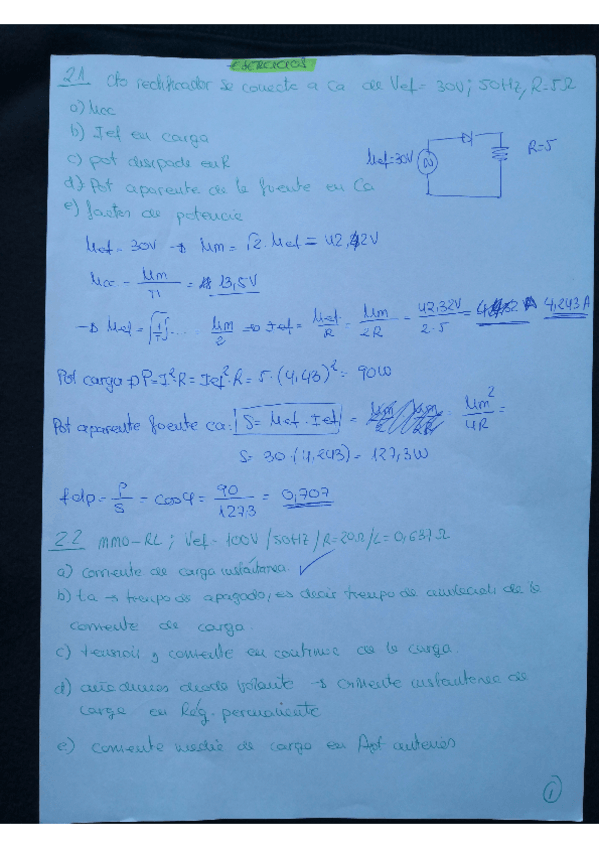 EJERCICIOS
2.1 Cto rectificador se conecte a Ca de Vef = 30V; 50Hz, R=5Ω
a) Ucc
b) Ief en carga
c) pot disipada en R
d) Pot aparente de la fuente en Ca
e) factor de potencia
Uef=30V
R=5
Uef = 30V → Um = √2 · Uef = 42,42V
Ucc = Um/π = 13,5V
→ Uef = √1/T∫ .... Um/2 → Ief = Uef/R = Um/2R = 42,32V/2·5 = 4,243A
Pot carga → P=I²·R = Ief²·R = 5·(4,43)² = 90W
Pot aparente fuente ca: S = Uef · Ief = Um²/4R =
S = 30·(4,243) = 127,3W
fdp = P/S = cosφ = 90/127,3 = 0,707
2.2 mmo-RL; Vef = 100V / 50Hz / R=20Ω / L=0,637Ω
a) corriente de carga instántanea.
b) ta → tiempo de apagado, es decir tiempo de de la
corriente de carga.
c) tensión y corriente en continua de la carga.
d) añadimos diodo volante → corriente instantanea de
carga en Rég. permanente
e) corriente media de carga en Apt anterior
1